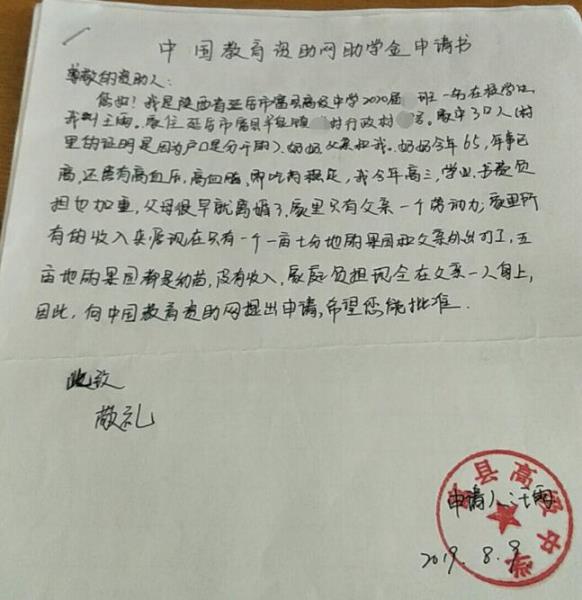 中国教育资助网助学金申请书
尊敬的资助人:
您好!我是陕西省延安市富县高级中学2020届 班一名在校学生,
我叫王雨。家住延安市富县羊泉镇 村行政村 。家中3口人(村
里的证明是因为户口是分开的)、奶奶、父亲和我。奶奶今年65,年事已
高,还患有高血压,高血脂,即吃药 ,我今年高三,学业、书费负
担也加重,父母很早就离婚了,家里只有父亲一个劳动力;家里所
有的收入来源现在只有一个一亩七分地的果园和父亲外出打工,五
亩地的果园都是幼苗,没有收入,家庭负担现全在父亲一人身上,
因此,向中国教育资助网提出申请,希望您能批准.
此致
敬礼
县高级中学
申请人:王雨
2019.8.8